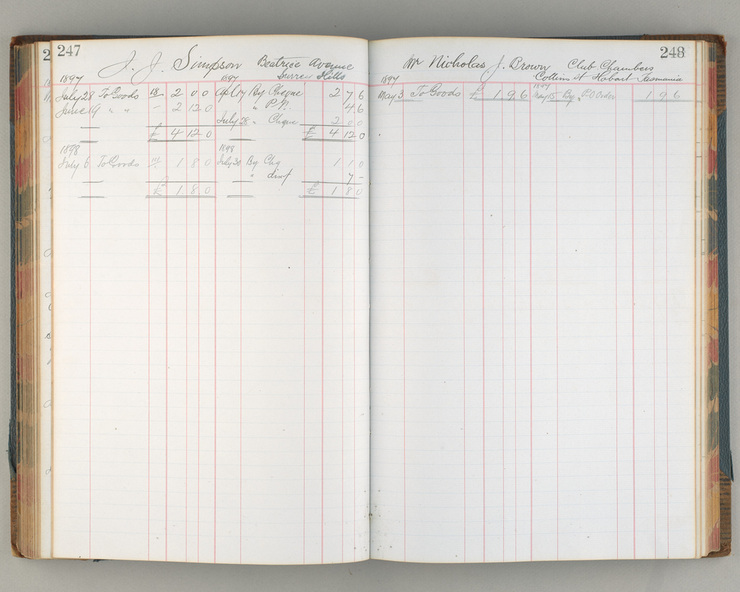 247
J. J. Simpson Beatrice Avenue
Surrey Hills
1897 1897
July 28 To Goods 18 2 0 0 By Cheque 2 7 6
June 19 " " - 2 12 0 " P.N. 4 6
July 28 " Cheque 2 0 0
£ 4 12 0 £ 4 12 0
1898 1898
July 6 To Goods 1 8 0 July 30 By Chq 1 1 0
" 7 -
£ 1 8 0 £ 1 8 0
248
Mr Nicholas J. Brown Club Chambers
Collins St Hobart Tasmania
1897 1897
May 3 To Goods £ 1 9 6 May 15 By P.O Order 1 9 6